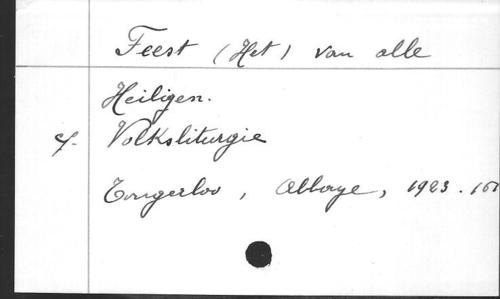 Feest (Het) van alle
Heiligen.
cf. Volksliturgie
Tongerloo, Abbaye, 1923.